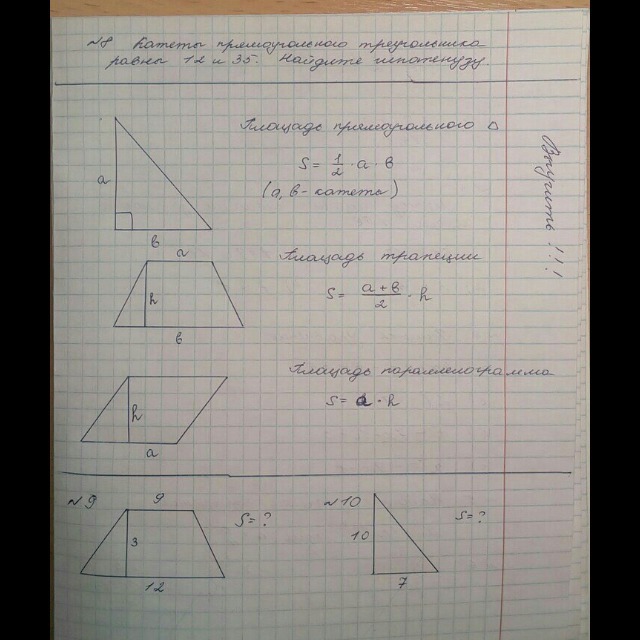 №8 Катеты прямоугольного треугольника
равны 12 и 35. Найдите гипотенузу.
Площадь прямоугольного △
S = 1/2 · a · b
(a, b - катеты)
a
b
Выучить!!!
Площадь трапеции
S = (a + b)/2 · h
a
h
b
Площадь параллелограмма
S = a · h
h
a
№9
9
3
12
S = ?
№10
10
7
S = ?